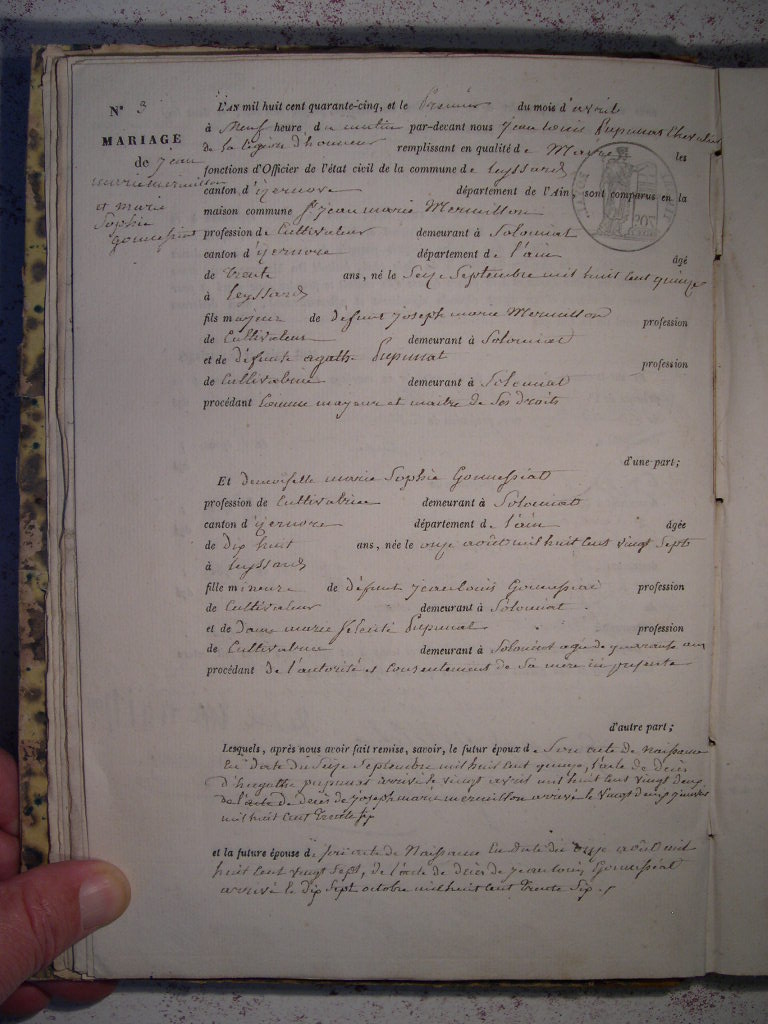 N° 3
MARIAGE
de jean
marie mermillon
et marie
Sophie
gonnessiat
L'AN mil huit cent quarante-cinq, et le Premier du mois d'avril
à Neuf heure du matin par-devant nous jean louis Pupunat Chevalier
de la légion d'honneur remplissant en qualité de Maire les
fonctions d'Officier de l'état civil de la commune de leyssard
canton d'ijernore département de l'Ain, sont comparus en la
maison commune Sr jean marie Mermillon
profession de Cultivateur demeurant à Solomiat
canton d'ijernore département de l'ain âgé
de trente ans, né le Seize Septembre mil huit cent quinze
à leyssard
fils majeur de défunt joseph marie Mermillon profession
de Cultivateur demeurant à Solomiat
et de défunte agathe Pupunat profession
de Cultivatrice demeurant à Solomiat
procédant comme majeur et maitre de ses droits
d'une part;
Et demoiselle marie Sophie Gonnessiat
profession de Cultivatrice demeurant à Solomiat
canton d'ijernore département de l'ain âgée
de dix huit ans, née le onze août mil huit cent vingt Sept
à leyssard
fille mineure de défunt jean louis Gonnessiat profession
de Cultivateur demeurant à Solomiat
et de dame marie félicité Pupunat profession
de Cultivatrice demeurant à Solomiat agée de quarante ans
procédant de l'autorité et consentement de Sa mère ici présente
d'autre part;
Lesquels, après nous avoir fait remise, savoir, le futur époux de Son acte de Naissance
En date du Seize Septembre mil huit cent quinze, l'acte de décès
d'hagathe pupunat arrivé le vingt avril mil huit cent vingt deux
de l'acte de décès de joseph marie mermillon arrivé le vingt deux janvier
mil huit cent trente six
et la future épouse de Son acte de Naissance En date du onze août mil
huit cent vingt sept, de l'acte de décès de jean louis Gonnessiat
arrivé le dix Sept octobre mil huit cent trente Six